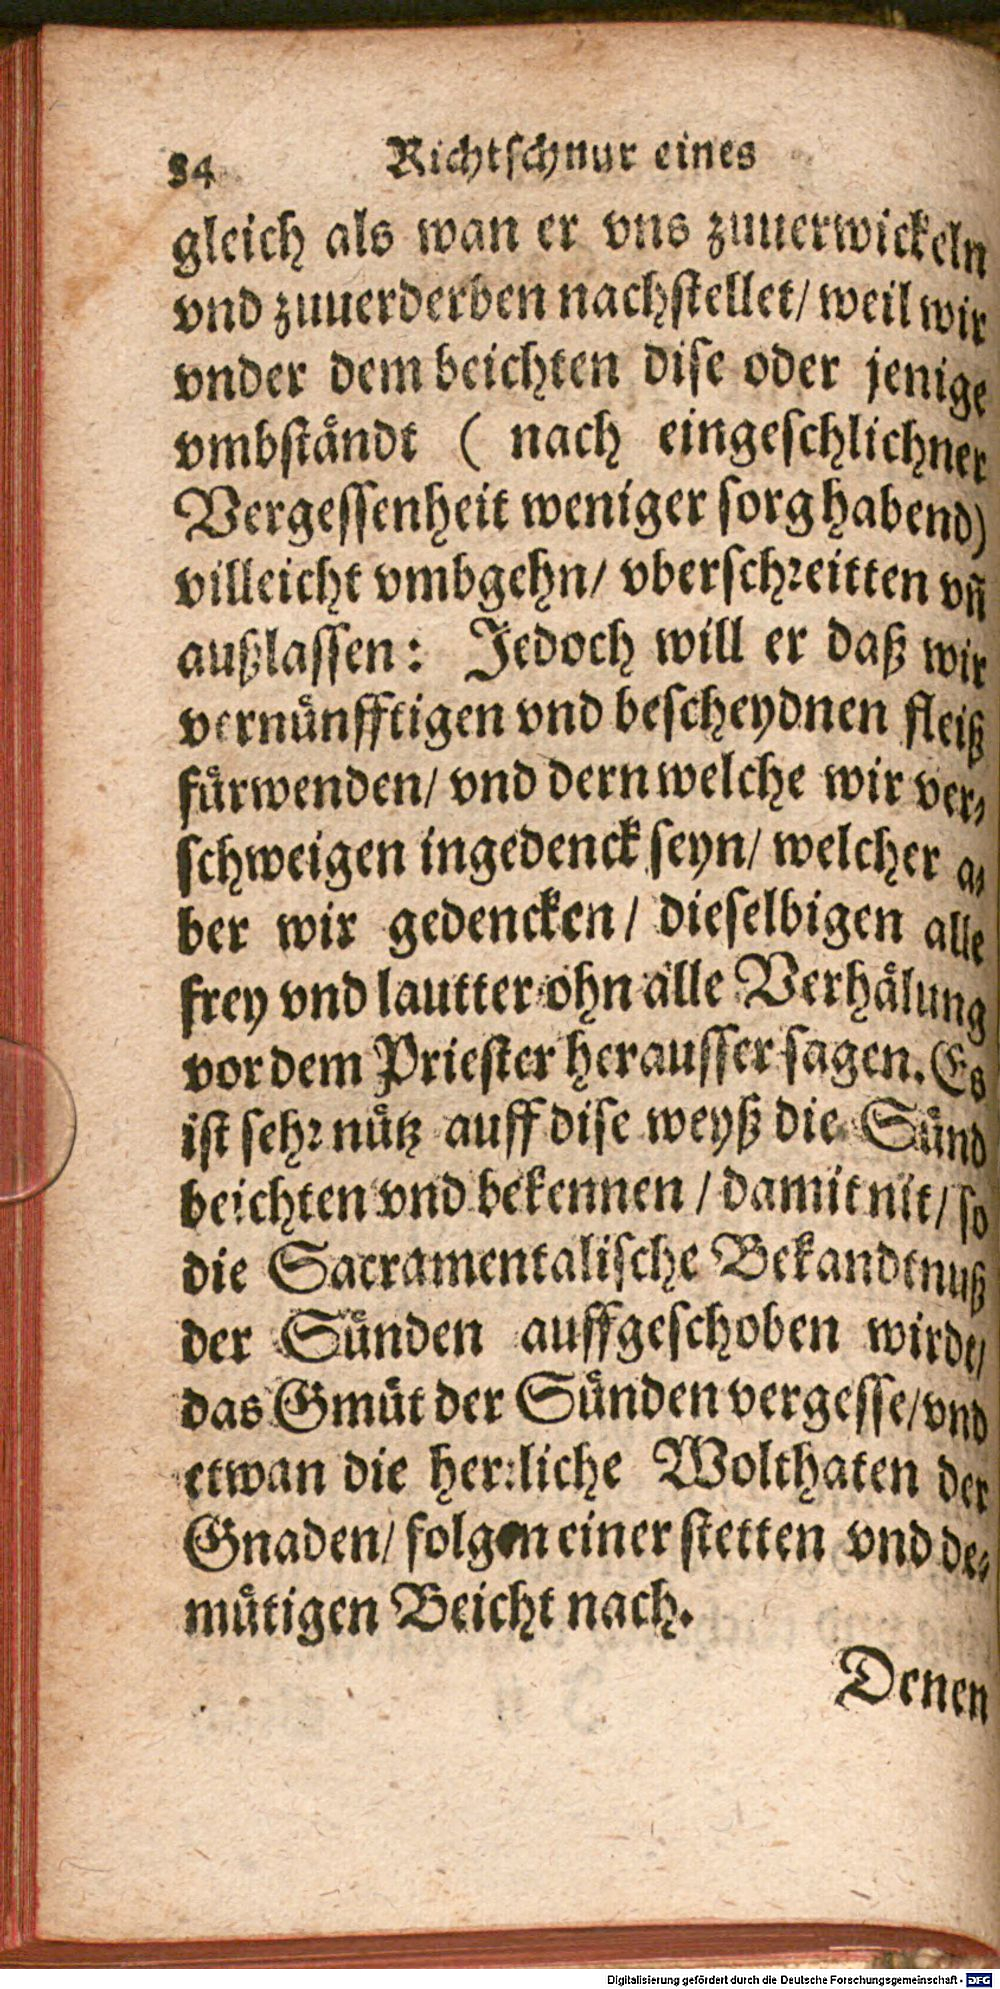 84 Richtschnur eines
gleich als wan er vns zuuerwickeln
vnd zuuerderben nachstellet/ weil wir
vnder dem beichten dise oder jenige
vmbständt ( nach eingeschlichner
Vergessenheit weniger sorg habend)
villeicht vmbgehn/ vberschreitten vñ
außlassen: Jedoch will er daß wir
vernünfftigen vnd bescheydnen fleiß
fürwenden/ vnd dern welche wir ver-
schweigen ingedenck seyn/ welcher a-
ber wir gedencken/ dieselbigen alle
frey vnd lautter ohn alle Verhälung
vor dem Priester herausser sagen. Es
ist sehr nütz auff dise weyß die Sünd
beichten vnd bekennen / damit nit/ so
die Sacramentalische Bekandtnuß
der Sünden auffgeschoben wirdt/
das Gmüt der Sünden vergesse/ vnd
etwan die herrliche Wolthaten der
Gnaden/ folgen einer stetten vnd de-
mütigen Beicht nach.
Denen
Digitalisierung gefördert durch die Deutsche Forschungsgemeinschaft - DFG